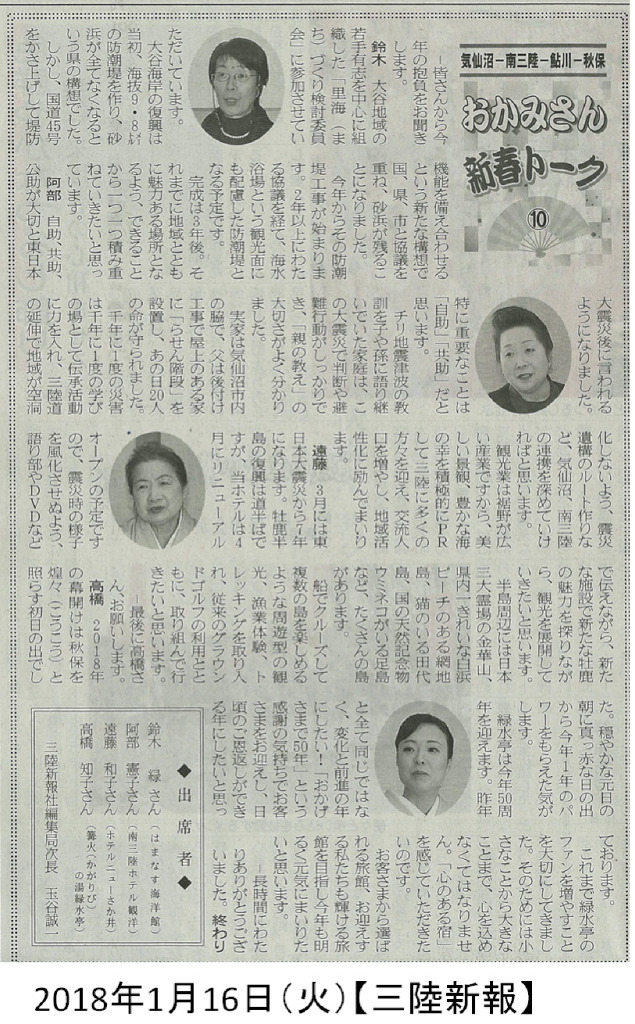 気仙沼―南三陸―鮎川―秋保
おかみさん
新春トーク
⑩
―皆さんから今
年の抱負をお聞き
します。
鈴木 大谷地域の
若手有志を中心に組
織した「里海（ま
ち）づくり検討委員
会」に参加させてい
ただいています。
大谷海岸の復興は
当初、海抜9・8㍍
の防潮堤を作り、砂
浜が全てなくなると
いう県の構想でした。
しかし、国道45号
をかさ上げして堤防
機能を備え合わせる
という新たな構想で
国、県、市と協議を
重ね、砂浜が残るこ
とになりました。
今年からその防潮
堤工事が始まりま
す。2年以上にわた
る協議を経て、海水
浴場という観光面に
も配慮した防潮堤と
なる予定です。
完成は3年後。そ
れまでに地域ととも
に魅力ある場所とな
るよう、できること
から一つ一つ積み重
ねていきたいと思っ
ています。
阿部 自助、共助、
公助が大切と東日本
大震災後に言われる
ようになりました。
特に重要なことは
「自助」「共助」だと
思います。
チリ地震津波の教
訓を子や孫に語り継
いでいた家庭は、こ
の大震災で判断や避
難行動がしっかりで
き、「親の教え」の
大切さがよく分かり
ました。
実家は気仙沼市内
の脇で、父は後付け
工事で屋上のある家
に「らせん階段」を
設置し、あの日20人
の命が守られました。
千年に1度の災害
は千年に1度の学び
の場として伝承活動
に力を入れ、三陸道
の延伸で地域が空洞
化しないよう、震災
遺構のルート作りな
ど、気仙沼、南三陸
の連携を深めていけ
ればと思います。
観光業は裾野が広
い産業ですから、美
しい景観、豊かな海
の幸を積極的にPR
して三陸に多くの
方々を迎え、交流人
口を増やし、地域活
性化に励んでまいり
ます。
遠藤 3月には東
日本大震災から7年
になります。牡鹿半
島の復興は道半ばで
すが、当ホテルは4
月にリニューアル
オープンの予定です
ので、震災時の様子
を風化させぬよう、
語り部やDVDなど
で伝えながら、新た
な施設で新たな牡鹿
の魅力を探りなが
ら、観光を展開して
いきたいと思います。
半島周辺には日本
三大霊場の金華山、
県内一きれいな白浜
ビーチのある網地
島、猫のいる田代
島、国の天然記念物
ウミネコがいる足島
など、たくさんの島
があります。
船でクルーズして
複数の島を楽しめる
ような周遊型の観
光、漁業体験、ト
レッキングを取り入
れ、従来のグラウン
ドゴルフの利用とと
もに、取り組んで行
きたいと思います。
―最後に高橋さ
ん、お願いします。
高橋 2018年
の幕開けは秋保を
煌々（こうこう）と
照らす初日の出でし
た。穏やかな元日の
朝に真っ赤な日の出
から今年1年のパ
ワーをもらえた気が
します。
緑水亭は今年50周
年を迎えます。昨年
と全て同じではな
く、変化と前進の年
にしたい！「おかげ
さまで50年」という
感謝の気持ちでお客
さまをお迎えし、日
頃のご恩返しができ
る年にしたいと思っ
ております。
これまで緑水亭の
ファンを増やすこと
を大切にしてきまし
た。そのためには小
さなことから大きな
ことまで、心を込め
なくてはなりませ
ん。「心のある宿」
を感じていただきた
いのです。
お客さまから選ば
れる旅館、お迎えす
る私たちも輝ける旅
館を目指し今年も明
るく元気にまいりた
いと思います。
―長時間にわた
りありがとうござ
いました。 終わり
◆出席者◆
鈴木 緑さん（はまなす海洋館）
阿部 憲子さん（南三陸ホテル観洋）
遠藤 和子さん（ホテルニューさか井）
高橋 知子さん（篝火（かがりび）の湯緑水亭）
三陸新報社編集局次長 玉谷誠一
2018年1月16日（火）【三陸新報】